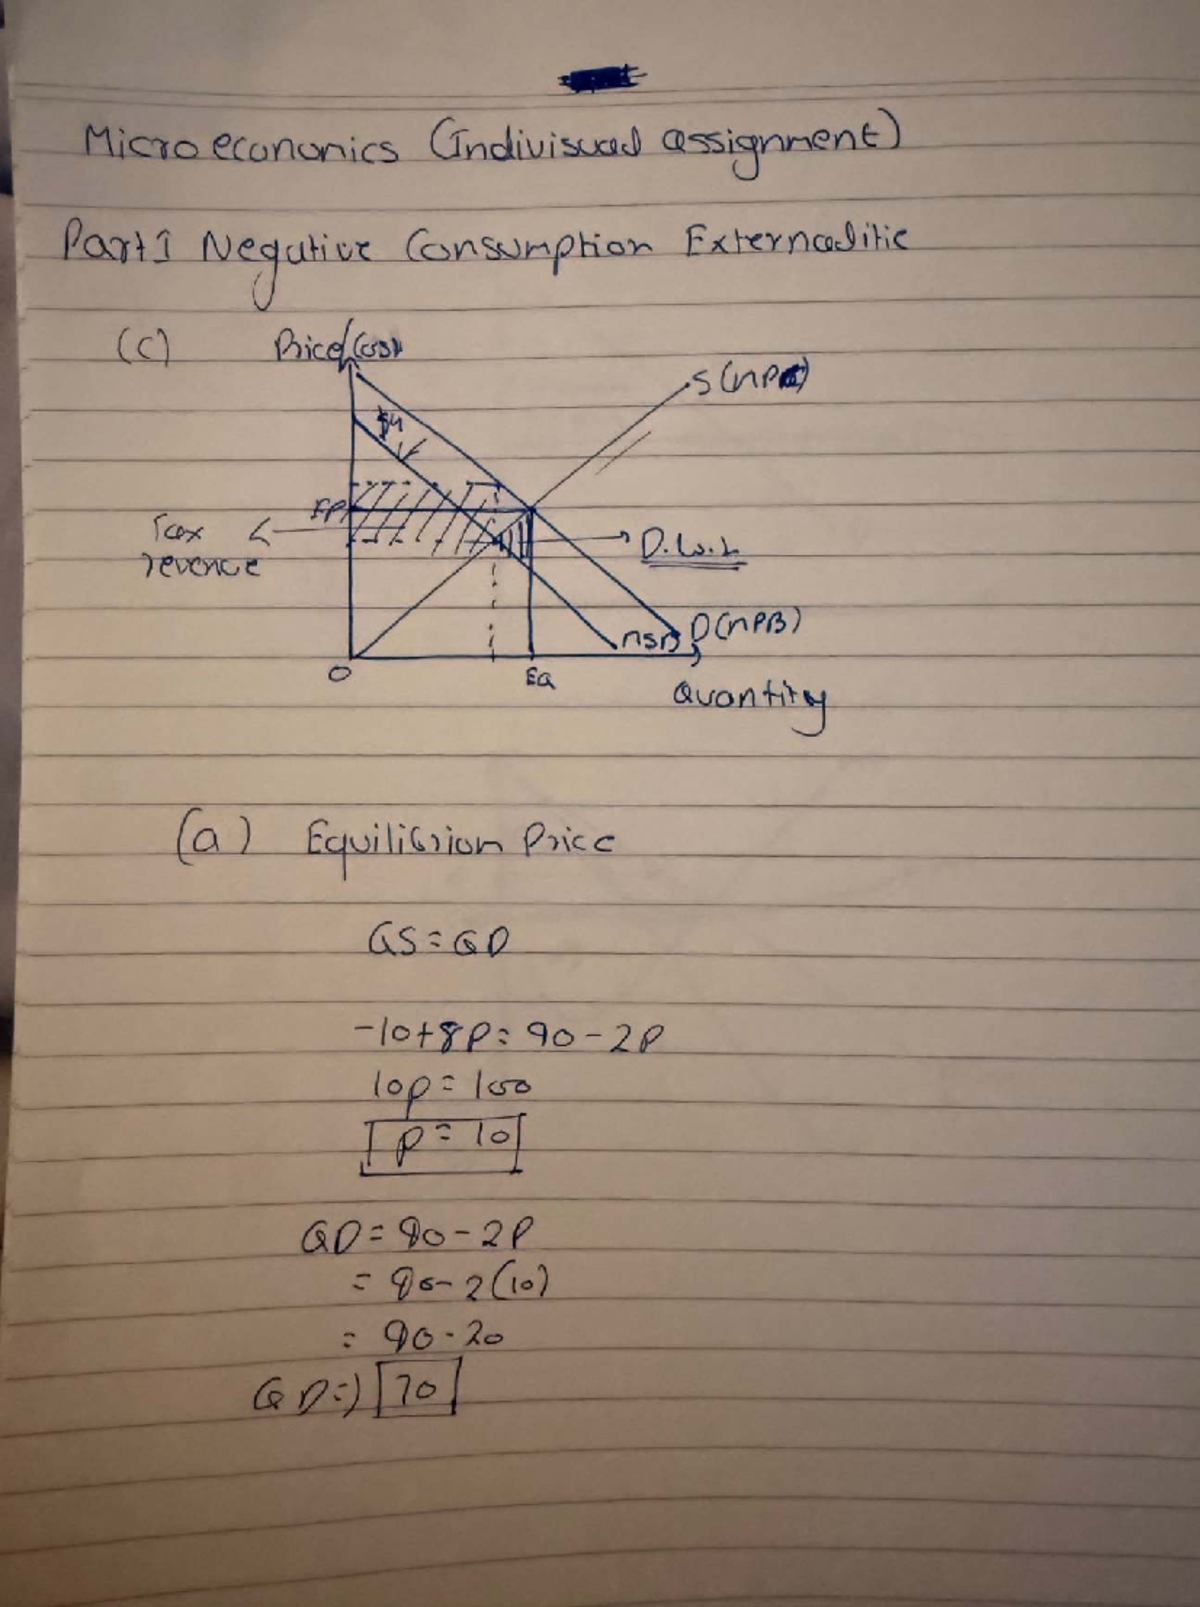 Microeconomics (Indivisual assignment)
Part 1 Negative Consumption Externalitie
(C)
Price/Cost
S(MPC)
$4
EP
Tax
revenue
D.W.L
MSB
D(MPB)
O
EQ
Quantity
(a) Equilibrium Price
QS=QD
-10+8P=90-2P
10P=100
P=10
QD=90-2P
=90-2(10)
=90-20
QD=) 70